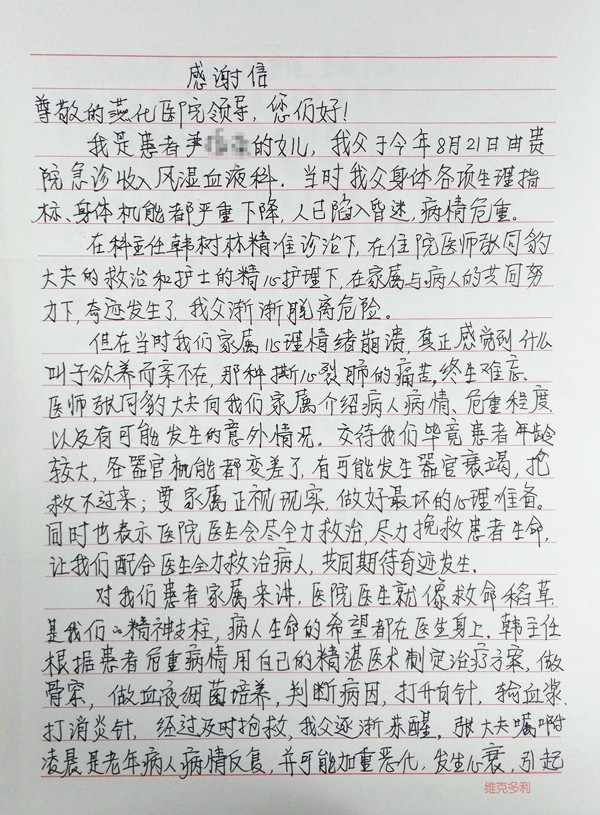 感谢信
尊敬的燕化医院领导，您们好！
我是患者尹的女儿，我父于今年8月21日由贵
院急诊收入风湿血液科．当时我父身体各项生理指
标、身体机能都严重下降，人已陷入昏迷，病情危重。
在科主任韩树林精准诊治下，在住院医师张阿豹
大夫的救治和护士的精心护理下，在家属与病人的共同努
力下，奇迹发生了，我父渐渐脱离危险。
但在当时我们家属心理情绪崩溃，真正感觉到什么
叫子欲养而亲不在，那种撕心裂肺的痛苦，终生难忘．
医师张阿豹大夫向我们家属介绍病人病情、危重程度
以及有可能发生的意外情况。交待我们毕竟患者年龄
较大，各器官机能都变差了，有可能发生器官衰竭，抢
救不过来；要家属正视现实，做好最坏的心理准备。
同时也表示医院医生会尽全力救治，尽力挽救患者生命，
让我们配合医生全力救治病人，共同期待奇迹发生．
对我们患者家属来讲，医院医生就像救命稻草
是我们心精神支柱，病人生命的希望都在医生身上．韩主任
根据患者危重病情用自己的精湛医术制定治疗方案，做
骨穿，做血液细菌培养，判断病因，打升白针，输血浆．
打消炎针，经过及时抢救，我父逐渐苏醒，张大夫嘱咐
凌晨是老年病人病情反复，并可能加重恶化，发生心衰，引起
维克多利